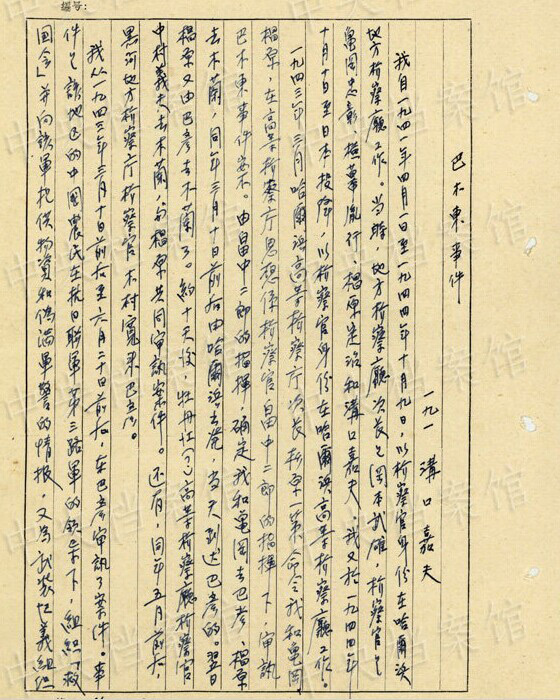 编号:
巴木東事件
一九一 溝口嘉夫
我自一九四一年四月一日至一九四四年十月九日，以检察官身份在哈尔浜
地方检察廳工作。当時，地方检察廳次長是岡本武雄，检察官是
亀岡忠彰、 胤行、楫原是治和溝口嘉夫，我又於一九四四年
十月十日至日本投降，以检察官身份在哈尔浜高等检察廳工作。
一九四三年三月哈尔浜高等检察庁次長杉原一策命令我和亀岡、
楫原，在高等检察庁思想係检察官畠中二郎的指揮下，审訊
巴木東事件案。由畠中二郎的指揮，确定我和亀岡去巴彦，楫原
去木蘭，同年三月十日前后由哈尔浜出发，当天到达巴彦的。翌日
楫原又由巴彦去木蘭了。約十天后，牡丹江(?)高等检察廳检察官
中村義夫去木蘭，与楫原共同审訊案件。还有，同年五月前后，
黑河地方检察庁检察官木村寬来巴彦。
我从一九四三年三月十日前后至六月二十日前后，在巴彦审訊了案件。事
件是該地区的中国農民在抗日聯軍第三路軍的領导下，組織「救
国会」并向該軍提供物資和偽滿軍警的情报，又为武装起義組織
中央档案馆